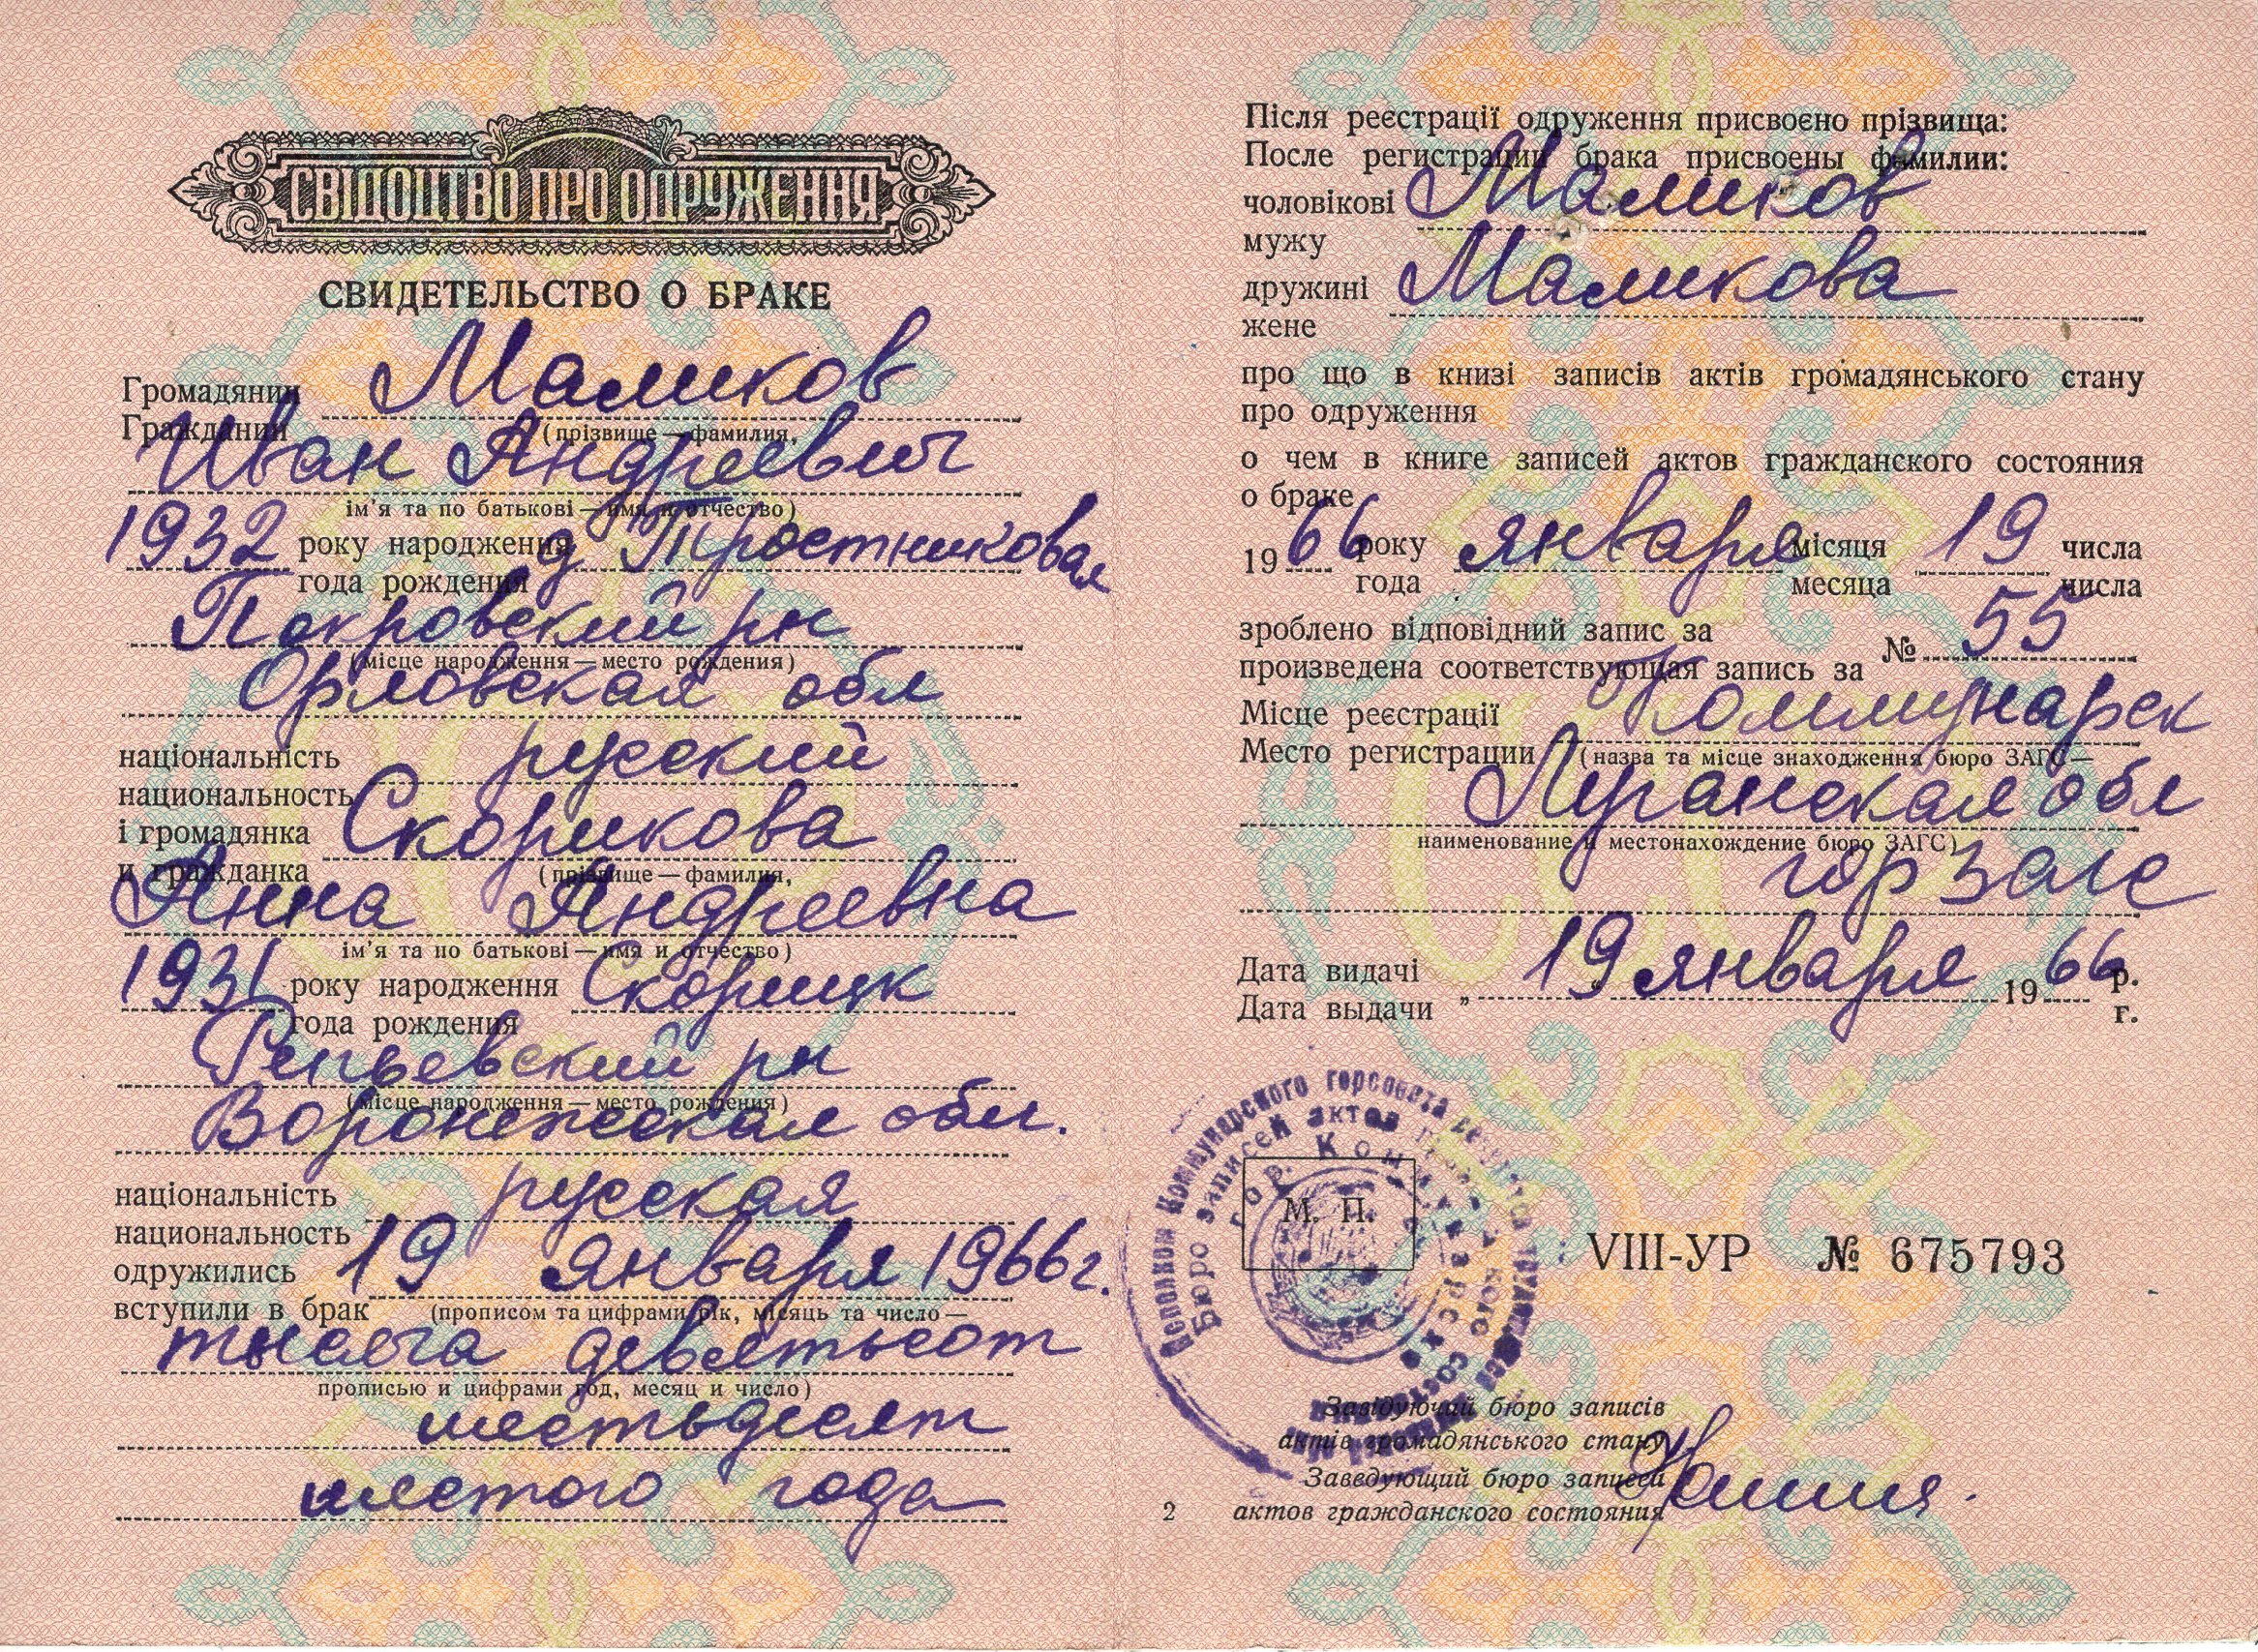 СВІДОЦТВО ПРО ОДРУЖЕННЯ
СВИДЕТЕЛЬСТВО О БРАКЕ
Громадянин Маликов
Гражданин (прізвище — фамилия,
Иван Андреевич
ім'я та по батькові — имя и отчество)
1932 року народження д Тростниковая
года рождения
Покровский рн
(місце народження — место рождения)
Орловская обл
національність русский
национальность
і громадянка Скорикова
и гражданка (прізвище — фамилия,
Анна Андреевна
ім'я та по батькові — имя и отчество)
1931 року народження Скорицк
года рождения
Репьевский рн
(місце народження — место рождения)
Воронежская обл.
національність русская
национальность
одружились 19 января 1966 г.
вступили в брак (прописом та цифрами рік, місяць та число —
тысяча девятьсот
прописью и цифрами год, месяц и число)
шестьдесят
шестого года
Після реєстрації одруження присвоєно прізвища:
После регистрации брака присвоены фамилии:
чоловікові Маликов
мужу
дружині Маликова
жене
про що в книзі записів актів громадянського стану
про одруження
о чем в книге записей актов гражданского состояния
о браке
19 66 року января місяця 19 числа
года месяца числа
зроблено відповідний запис за № 55
произведена соответствующая запись за
Місце реєстрації Коммунарск
Место регистрации (назва та місце знаходження бюро ЗАГС —
Луганская обл
наименование и местонахождение бюро ЗАГС)
горзагс
Дата видачі „19“ января 19 66 р.
Дата выдачи г.
Исполком Коммунарского горсовета депутатов трудящихся
Бюро записей актов гражданского состояния
гор. Коммунарск
М. П.
VIII-УР № 675793
Завідуючий бюро записів
актів громадянського стану
Заведующий бюро записей
актов гражданского состояния
2